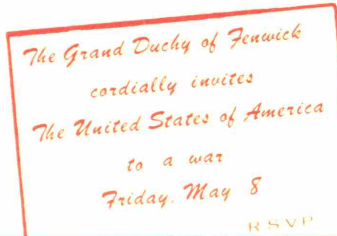 The Grand Duchy of Fenwick
cordially invites
The United States of America
to a war
Friday, May 8
RSVP